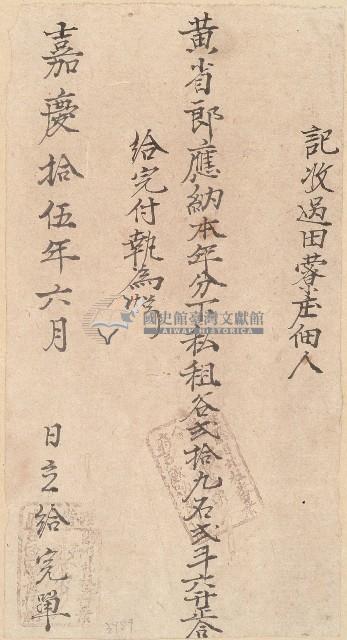 記收過田蓼庄佃人
黄省郎應納本年分下私租谷弍拾九石弍斗六廾正合
給完付執為炤
嘉慶拾伍年六月 日立給完單
國史館臺灣文獻館
TAIWAN HISTORICA
3489